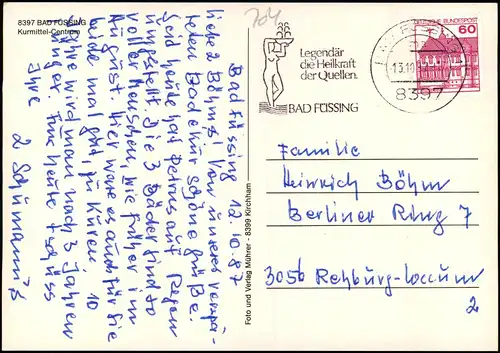 8397 BAD FÜSSING
Kurmittel-Centrum
704
Legendär
die Heilkraft
der Quellen.
BAD FÜSSING
13.10
8397
DEUTSCHE BUNDESPOST
60
Bad Füssing 12.10.87
liebe 2 Böhms! Von unserer verspä-
teten Badekur schöne Grüße.
Seid heute hat Petrus auf Regen
umgestellt. Die 3 Bäder sind so
voller Menschen, wie früher im
August. Hier wäre es auch für Sie
beide mal gut, zu kuren. 10
Jahre wird man nach 3 Jahren
jünger. Für heute tschüss
Ihre 2 Schumann's
Foto und Verlag Mührer - 8399 Kirchham
Familie
Heinrich Böhm
Berliner Ring 7
3056 Rehburg-Loccum
2